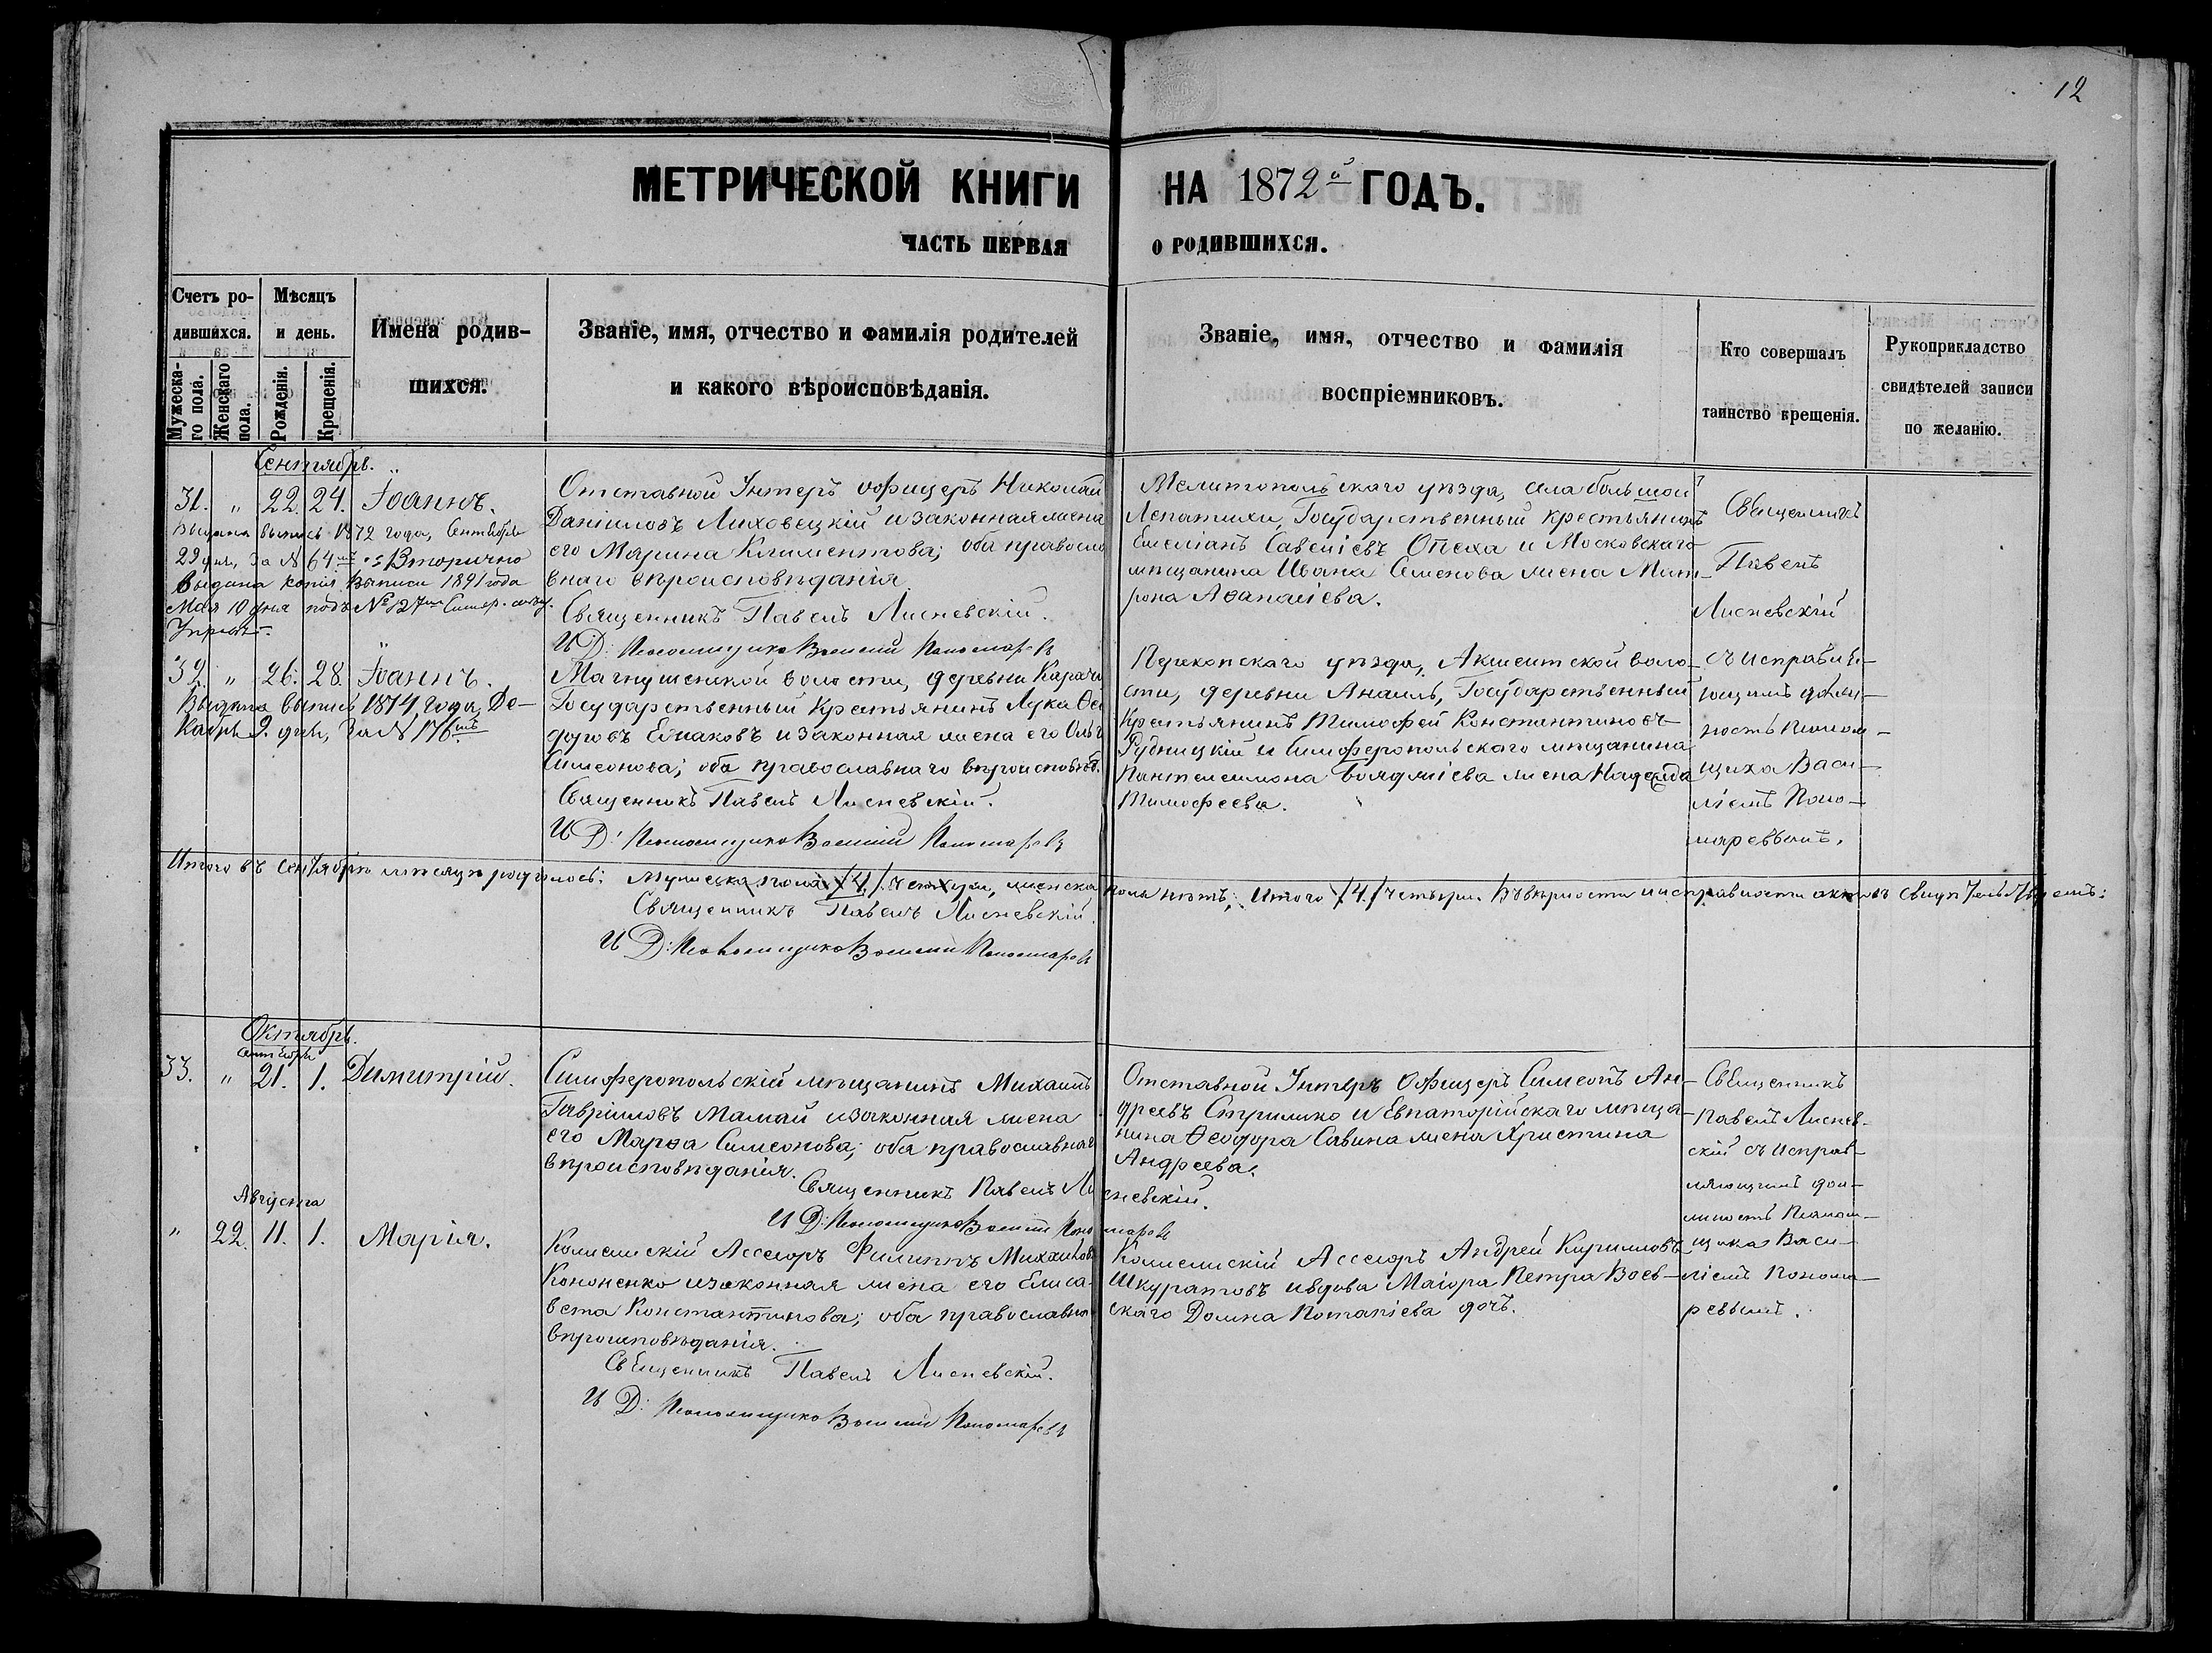 12
МЕТРИЧЕСКОЙ КНИГИ НА 1872й ГОДЪ.
ЧАСТЬ ПЕРВАЯ О РОДИВШИХСЯ.
Счетъ ро-
дившихся.
Мужеска-
го пола.
Женскаго
пола.
Мѣсяцъ
и день.
Рожденія.
Крещенія.
Имена родив-
шихся.
Званіе, имя, отчество и фамилія родителей
и какого вѣроисповѣданія.
Званіе, имя, отчество и фамилія
воспріемниковъ.
Кто совершалъ
таинство крещенія.
Рукоприкладство
свидѣтелей записи
по желанію.
Сентябрь.
31. " 22. 24. Іоаннъ.
Выдана выпись 1872 года, Сентября
29 дня, за N 64мъ Вторично
выдана копія выписи 1891 года
Мая 10 дня подъ № 127
Отставной Унтеръ офицеръ Николай
Даніиловъ Лиховецкій и законная жена
его Марина Климентова; оба правосла
внаго вѣроисповѣданія.
Священникъ Павелъ Лисневскій.
И Д: Псаломщика Василій Пономаревъ
Мелитопольскаго уѣзда, села большой
Лепатихи, Государственный крестьянинъ
Емеліанъ Савеліевъ Опеха и Московскаго
мѣщанина Ивана Семенова жена Мат-
рона Аѳанасіева.
Священникъ
Павелъ
Лисневскій
32. " 26. 28. Іоаннъ.
Выдана выпись 1874 года, Де-
кабря 9. дня, за N 176мъ
волости, деревни
Государственный Крестьянинъ Лука Ѳео
доровъ Ермаковъ и законная жена его
Симеонова; оба православнаго вѣроисповѣд.
Священникъ Павелъ Лисневскій.
И Д: Псаломщика Василій Пономаревъ
Перекопскаго уѣзда, воло-
сти, деревни Государственный
Крестьянинъ Тимофей Константиновъ
Рудницкій и Симферопольскаго мѣщанина
Пантелеимона жена Надежда
Тимофеева.
съ исправля-
ющимъ долж-
ность Псалом-
щика Васи-
ліемъ Поно-
маревымъ.
Итого въ Сентябрѣ мѣсяцѣ родилось: Мужеска пола /4./ четыри, женска пола нѣтъ; Итого /4./ четыри. Въ вѣрности и исправности актовъ свидѣтельствуемъ:
Священникъ Павелъ Лисневскій.
И Д: Псаломщика Василій Пономаревъ
Октябрь.
Сентября
33. " 21. 1. Димитрій.
Симферопольскій мѣщанинъ Михаилъ
Гавріиловъ Мамай и законная жена
его Марѳа Симеонова; оба православнаго
вѣроисповѣданія.
Священникъ Павелъ Лисневскій.
И Д: Псаломщика Василій Пономаревъ
Отставной Унтеръ Офицеръ Симеонъ Ан-
дреевъ Стрилько и Евпаторійскаго мѣща-
нина Ѳеодора Савина жена Христина
Андреева.
Священникъ
Павелъ Лиснев-
скій съ исправ-
ляющимъ дол-
жность Псалом-
щика Васи-
ліемъ Понома-
ревымъ.
Августа
" 22. 11. 1. Марія.
Колежскій Ассесоръ Филиппъ Михаиловъ
Кононенко и законная жена его Елиса-
вета Константинова; оба православнаго
вѣроисповѣданія.
Священникъ Павелъ Лисневскій.
И Д: Псаломщика Василій Пономаревъ
Колежскій Ассесоръ Андрей Кирилловъ
Шкуратовъ и вдова Маіора Петра Воев-
скаго Домна Потапіева дочь.